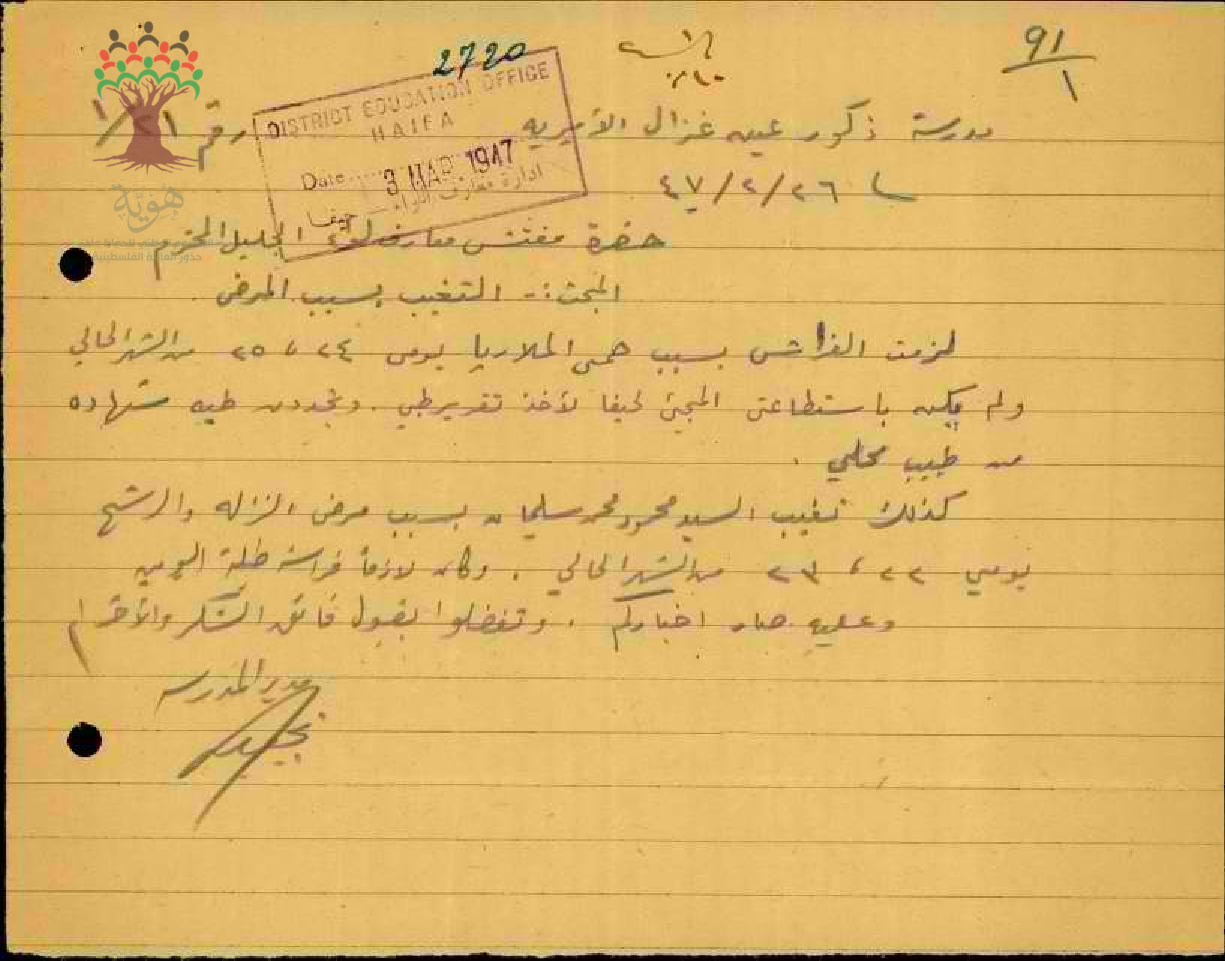 91/1
2720
DISTRICT EDUCATION OFFICE
HAIFA
Date 3 MAR 1947
ادارة معارف لواء حيفا
هوية
جذور العائلة الفلسطينية
مدرسة ذكور عين غزال الأميرية رقم ٢١/١
٤٧/٢/٢٦
حضرة مفتش معارف لواء الجليل المحترم
المبحث :- التغيب بسبب المرض
لزمت الفراش بسبب حمى الملاريا يومي ٢٤ ، ٢٥ من الشهر الحالي
ولم يكن باستطاعتي المجيئ لحيفا لأخذ تقرير طبي . وتجدون طيه شهاده
من طبيب محلي .
كذلك تغيب السيد محمود محمد سليمان بسبب مرض النزله والرشح
يومي ٢٢ ، ٢٣ من الشهر الحالي . وكان لازماً فراشه طيلة اليومين
وعليه صار اخباركم . وتفضلوا بقبول فائق الشكر والأحترام
مدير المدرسه